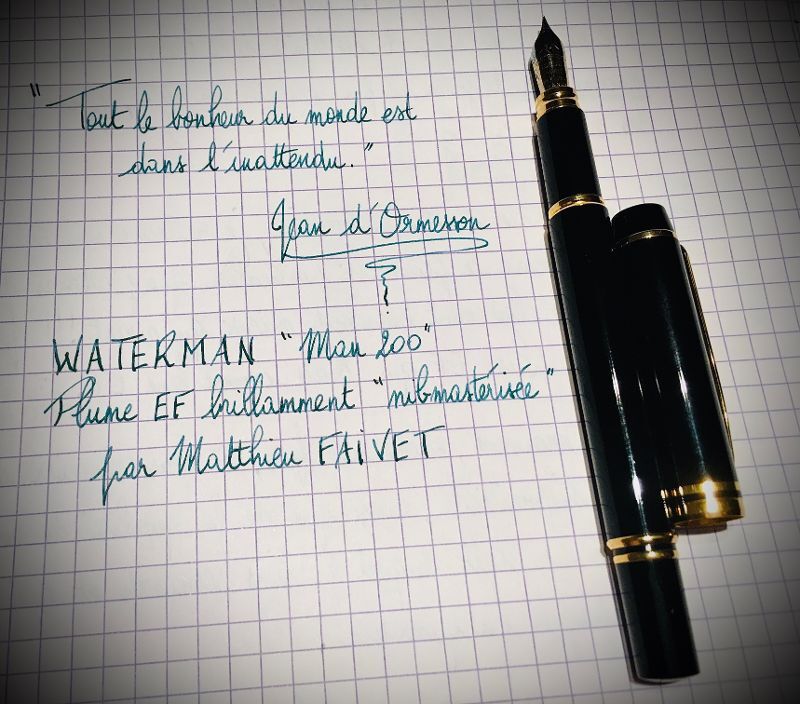 "Tout le bonheur du monde est
dans l'inattendu."
Jean d'Ormesson
WATERMAN "Man 200"
Plume EF brillamment "nibmastérisée"
par Matthieu FAIVET